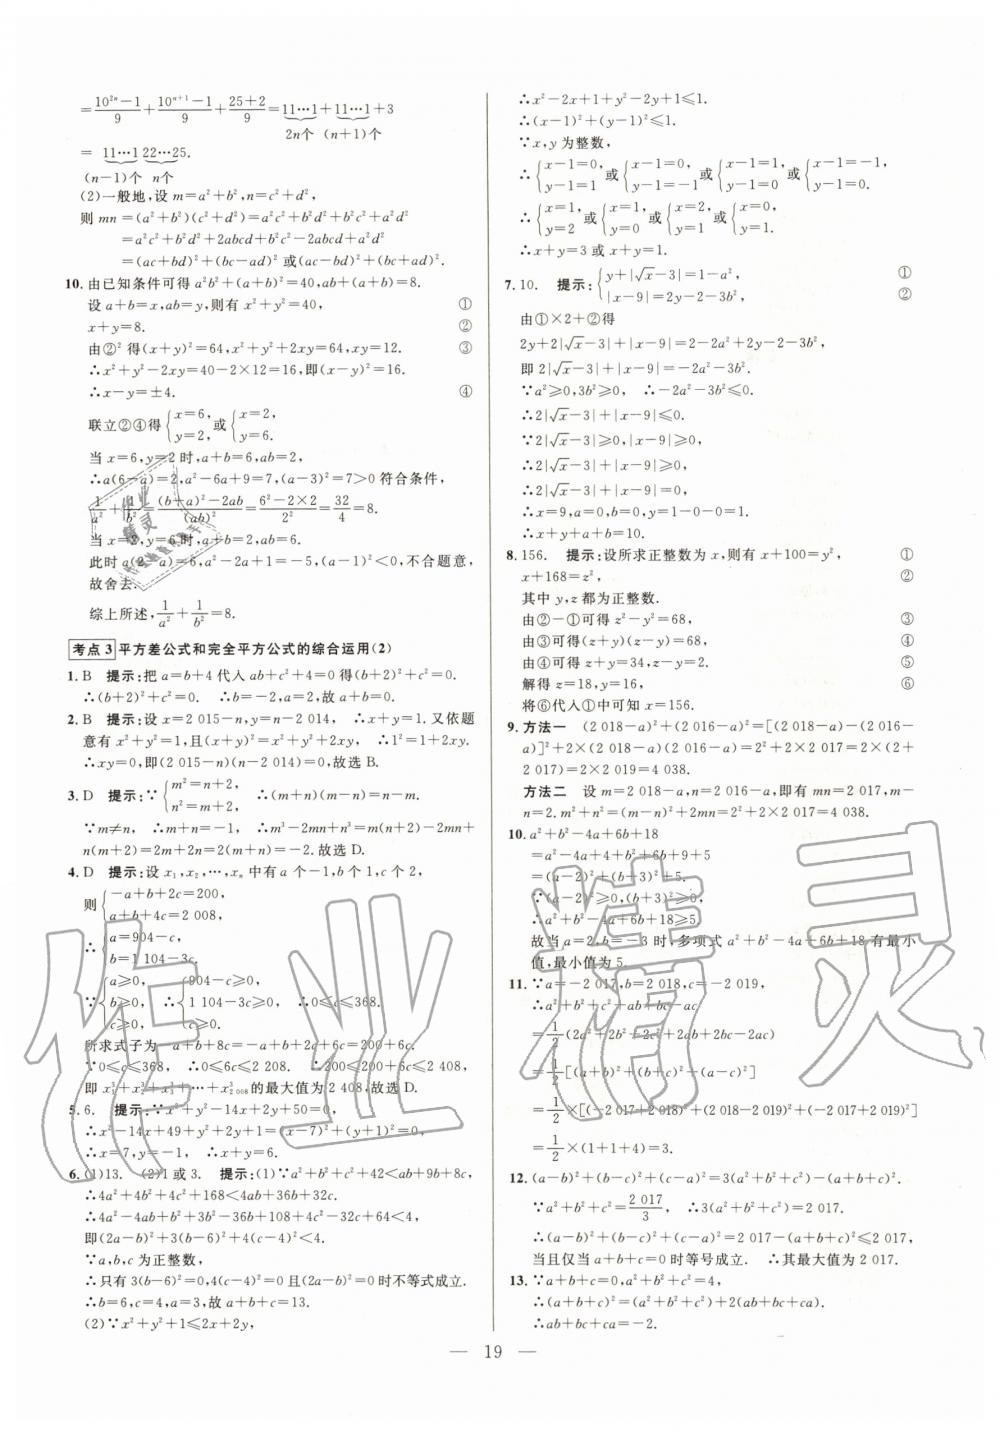 =(10²ⁿ−1)/9+(10ⁿ⁺¹−1)/9+(25+2)/9=11…1+11…1+3
2n个 (n+1)个
= 11…1 22…25.
(n−1)个 n个
(2)一般地,设 m=a²+b²,n=c²+d²,
则 mn=(a²+b²)(c²+d²)=a²c²+b²d²+b²c²+a²d²
=a²c²+b²d²+2abcd+b²c²−2abcd+a²d²
=(ac+bd)²+(bc−ad)² 或(ac−bd)²+(bc+ad)².
10. 由已知条件可得 a²b²+(a+b)²=40,ab+(a+b)=8.
设 a+b=x,ab=y,则有 x²+y²=40, ①
x+y=8. ②
由②² 得(x+y)²=64,x²+y²+2xy=64,xy=12. ③
∴x²+y²−2xy=40−2×12=16,即(x−y)²=16.
∴x−y=±4. ④
联立②④得{x=6, y=2,或{x=2, y=6.
当 x=6,y=2 时,a+b=6,ab=2.
∴a(6−a)=2,a²−6a+9=7,(a−3)²=7>0 符合条件,
1/a²+1/b²=((b+a)²−2ab)/(ab)²=(6²−2×2)/2²=32/4=8.
当 x=2,y=6 时,a+b=2,ab=6.
此时 a(2−a)=6,a²−2a+1=−5,(a−1)²<0,不合题意,
故舍去.
综上所述,1/a²+1/b²=8.
考点 3 平方差公式和完全平方公式的综合运用(2)
1. B 提示:把 a=b+4 代入 ab+c²+4=0 得(b+2)²+c²=0.
∴(b+2)²+c²=0. ∴b=−2,a=2,故 a+b=0.
2. B 提示:设 x=2 015−n,y=n−2 014, ∴x+y=1. 又依题
意有 x²+y²=1,且(x+y)²=x²+y²+2xy, ∴1²=1+2xy.
∴xy=0,即(2 015−n)(n−2 014)=0,故选 B.
3. D 提示:∵{m²=n+2, n²=m+2, ∴(m+n)(m−n)=n−m.
∵m≠n, ∴m+n=−1, ∴m³−2mn+n³=m(n+2)−2mn+
n(m+2)=2m+2n=2(m+n)=−2. 故选 D.
4. D 提示:设 x₁,x₂,…,xₙ 中有 a 个−1,b 个 1,c 个 2,
则{−a+b+2c=200, a+b+4c=2 008,
∴{a=904−c, b=1 104−3c.
∵{a≥0, b≥0, c≥0, ∴{904−c≥0, 1 104−3c≥0, c≥0, ∴0≤c≤368.
所求式子为−a+b+8c=−a+b+2c+6c=200+6c.
∵0≤c≤368, ∴0≤6c≤2 208. ∴200≤200+6c≤2 408,
即 x₁³+x₂³+x₃³+…+x³₂₀₀₈的最大值为 2 408,故选 D.
5. 6. 提示:∵x²+y²−14x+2y+50=0,
∴x²−14x+49+y²+2y+1=(x−7)²+(y+1)²=0.
∴x=7,y=−1, ∴x+y=6.
6. (1)13. (2)1 或 3. 提示:(1)∵a²+b²+c²+42<ab+9b+8c,
∴4a²+4b²+4c²+168<4ab+36b+32c.
∴4a²−4ab+b²+3b²−36b+108+4c²−32c+64<4,
即(2a−b)²+3(b−6)²+4(c−4)²<4.
∵a,b,c 为正整数,
∴只有 3(b−6)²=0,4(c−4)²=0 且(2a−b)²=0 时不等式成立.
∴b=6,c=4,a=3,故 a+b+c=13.
(2)∵x²+y²+1≤2x+2y,
∴x²−2x+1+y²−2y+1≤1.
∴(x−1)²+(y−1)²≤1.
∵x,y 为整数,
∴{x−1=0, y−1=1 或{x−1=0, y−1=−1 或{x−1=1, y−1=0 或{x−1=−1, y−1=0.
∴{x=1, y=2 或{x=1, y=0 或{x=2, y=1 或{x=0, y=1.
∴x+y=3 或 x+y=1.
7. 10. 提示:{y+|√x−3|=1−a², ① |x−9|=2y−2−3b², ②
由①×2+②得
2y+2|√x−3|+|x−9|=2−2a²+2y−2−3b²,
即 2|√x−3|+|x−9|=−2a²−3b².
∵a²≥0,3b²≥0, ∴−2a²−3b²≤0.
∴2|√x−3|+|x−9|≤0.
∵2|√x−3|≥0,|x−9|≥0,
∴2|√x−3|+|x−9|≥0.
∴2|√x−3|+|x−9|=0.
∴x=9,a=0,b=0,y=1−0−0=1.
∴x+y+a+b=10.
8. 156. 提示:设所求正整数为 x,则有 x+100=y², ①
x+168=z², ②
其中 y,z 都为正整数.
由②−①可得 z²−y²=68, ③
由③可得(z+y)(z−y)=68, ④
由④可得(z+y)(z−y)=34×2. ⑤
解得 z=18,y=16, ⑥
将⑥代入①中可知 x=156.
9. 方法一 (2 018−a)²+(2 016−a)²=[(2 018−a)−(2 016−
a)]²+2×(2 018−a)(2 016−a)=2²+2×2 017=2×(2+
2 017)=2×2 019=4 038.
方法二 设 m=2 018−a,n=2 016−a,即有 mn=2 017,m−
n=2. m²+n²=(m−n)²+2mn=2²+2×2 017=4 038.
10. a²+b²−4a+6b+18
=a²−4a+4+b²+6b+9+5
=(a−2)²+(b+3)²+5.
∵(a−2)²≥0,(b+3)²≥0,
∴a²+b²−4a+6b+18≥5.
故当 a=2,b=−3 时,多项式 a²+b²−4a+6b+18 有最小
值,最小值为 5.
11. ∵a=−2 017,b=2 018,c=−2 019,
∴a²+b²+c²+ab+bc−ac
=1/2(2a²+2b²+2c²+2ab+2bc−2ac)
=1/2[(a+b)²+(b+c)²+(a−c)²]
=1/2×[(−2 017+2 018)²+(2 018−2 019)²+(−2 017+2 019)²]
=1/2×(1+1+4)=3.
12. (a−b)²+(b−c)²+(c−a)²=3(a²+b²+c²)−(a+b+c)².
∵a²+b²+c²=2 017/3, ∴3(a²+b²+c²)=2 017.
∴(a−b)²+(b−c)²+(c−a)²=2 017−(a+b+c)²≤2 017,
当且仅当 a+b+c=0 时等号成立. ∴其最大值为 2 017.
13. ∵a+b+c=0,a²+b²+c²=4,
∴(a+b+c)²=(a²+b²+c²)+2(ab+bc+ca)=0.
∴ab+bc+ca=−2.
— 19 —
作业精灵